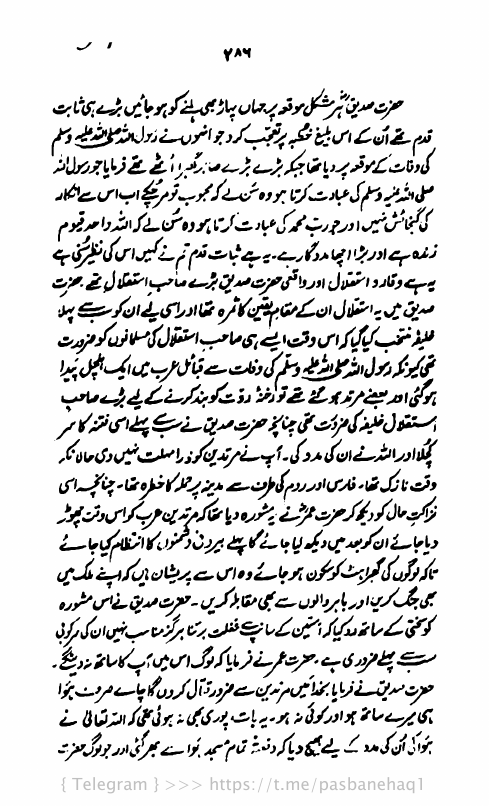 ۲۸۶
حضرت صدیقؓ ہر مشکل موقعہ پر جہاں پہاڑ بھی ہلنے کو ہو جائیں بڑے ہی ثابت
قدم تھے اُن کے اس بلیغ خطبہ پر تعجب کرو جو انہوں نے رسول اللہ صلی اللہ علیہ وسلم
کی وفات کے موقعہ پر دیا تھا جبکہ بڑے بڑے صحابہ گھبرا اُٹھے تھے فرمایا جو رسول اللہ
صلی اللہ علیہ وسلم کی عبادت کرتا ہو وہ سُن لے کہ محبوب تو مر چکے اب اس سے انکار
کی گنجائش نہیں اور جو رب محمد کی عبادت کرتا ہو وہ سُن لے کہ اللہ واحد قیوم
زندہ ہے اور بڑا اچھا مددگار ہے۔ یہ ہے ثبات قدم تم نے کہیں اس کی نظیر سُنی ہے
یہ ہے وقار و استقلال اور واقعی حضرت صدیق بڑے صاحب استقلال تھے۔ حضرت
صدیق میں یہ استقلال ان کے مقام یقین کا ثمرہ تھا اور اسی لیے ان کو سب سے پہلا
خلیفہ منتخب کیا گیا کہ اس وقت ایسے ہی صاحب استقلال کی مسلمانوں کو ضرورت
تھی کیونکہ رسول اللہ صلی اللہ علیہ وسلم کی وفات سے قبائل عرب میں ایک ہلچل پیدا
ہو گئی اور بعضے مرتد ہو گئے تھے تو رخنۂ ردّت کو بند کرنے کے لیے بڑے صاحب
استقلال خلیفہ کی ضرورت تھی چنانچہ حضرت صدیق نے سب سے پہلے اسی فتنہ کا سر
کچلا اور اللہ نے ان کی مدد کی۔ آپ نے مرتدین کو ذرا مہلت نہیں دی حالانکہ
وقت نازک تھا۔ فارس اور روم کی طرف سے مدینہ پر حملہ کا خطرہ تھا۔ چنانچہ اسی
نزاکتِ حال کو دیکھ کر حضرت عمرؓ نے یہ مشورہ دیا تھا کہ مرتدین عرب کو اس وقت چھوڑ
دیا جائے ان کو بعد میں دیکھ لیا جائے گا پہلے بیرونی دشمنوں کا انتظام کیا جائے
تاکہ لوگوں کی گھبراہٹ کو سکون ہو جائے وہ اس سے پریشان ہیں کہ اپنے ملک میں
بھی جنگ کریں اور باہر والوں سے بھی مقابلہ کریں۔ حضرت صدیق نے اس مشورہ
کو سختی کے ساتھ رد کیا کہ آستین کے سانپ سے غفلت برتنا ہرگز مناسب نہیں ان کی سرکوبی
سب سے پہلے ضروری ہے۔ حضرت عمر نے فرمایا کہ لوگ اس میں آپ کا ساتھ نہ دینگے۔
حضرت صدیق نے فرمایا بخدا میں مرتدین سے ضرور قتال کروں گا چاہے صرف ہوا
ہی میرے ساتھ ہو اور کوئی نہ ہو۔ یہ بات پوری بھی نہ ہوئی تھی کہ اللہ تعالیٰ نے
ہوا ہی اُن کی مدد کے لیے بھیج دیا کہ دفعۃً تمام مسجد ہوا سے بھر گئی اور جو لوگ حضرت
{ Telegram } >>> https://t.me/pasbanehaq1